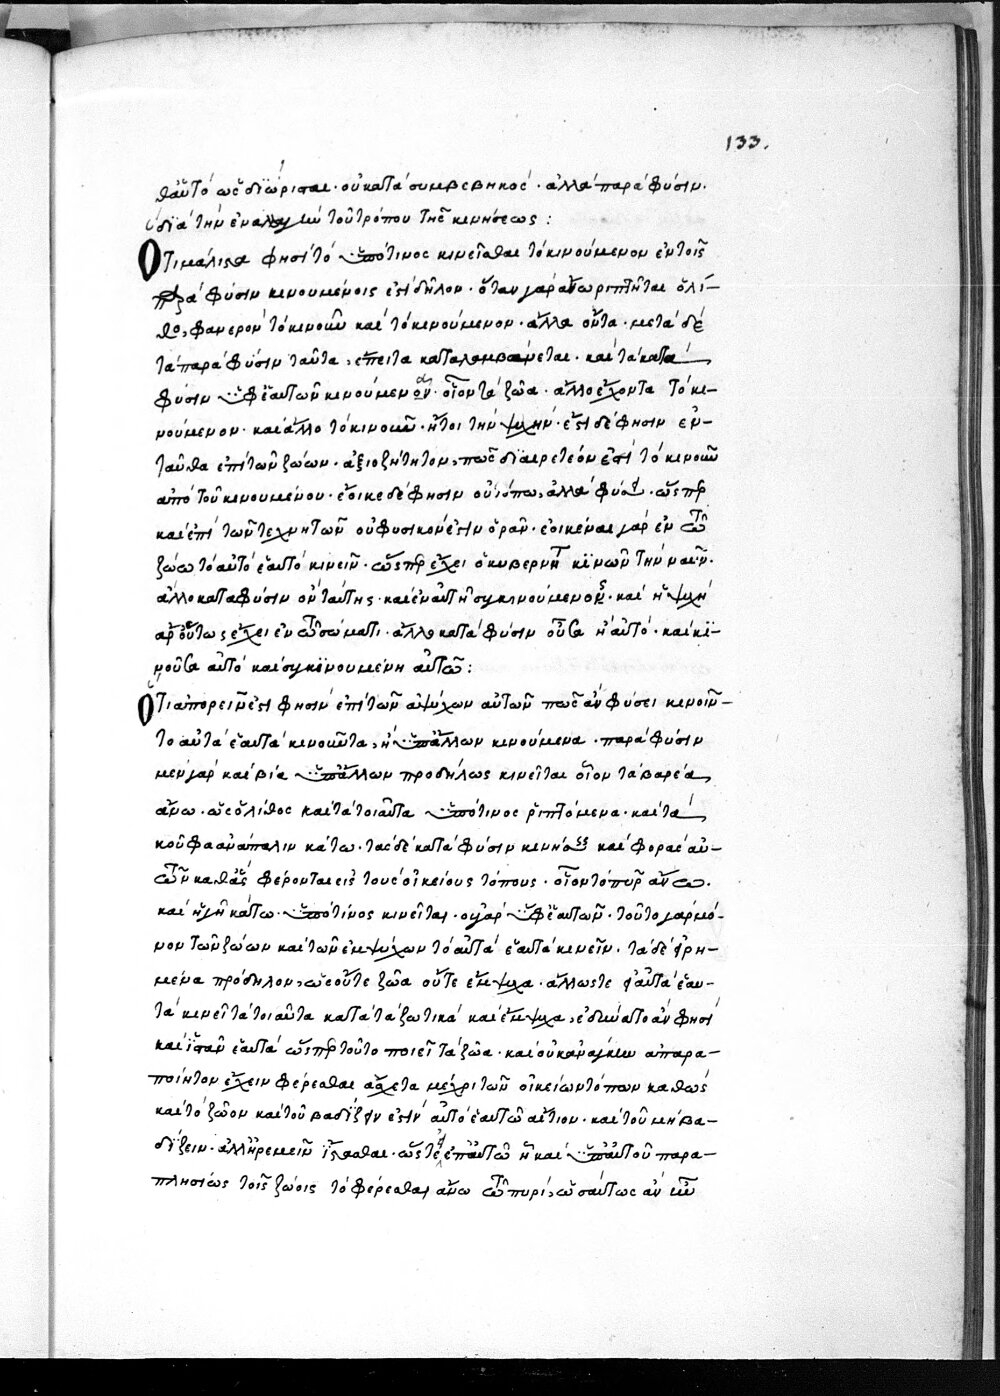 133.
θ' αὑτό ὡς διώρισται· οὐ κατὰ συμβεβηκός· ἀλλὰ παρὰ φύσιν·
διὰ τὴν ἐναλλαγὴν τοῦ τρόπου τῆς κινήσεως:
Ὅτι μάλιστα φησὶ τὸ ὑπό τινος κινεῖσθαι τὸ κινούμενον ἐν τοῖς
παρὰ φύσιν κινουμένοις ἐστὶ δῆλον· ὅταν γὰρ ἄνω ῥιπτῆται ὁ λί-
θος, φανερὸν τὸ κινοῦν καὶ τὸ κινούμενον· ἄλλα ὄντα· μετὰ δὲ
τὰ παρὰ φύσιν ταῦτα, ἔπειτα καταλαμβάνεται· καὶ τὰ κατὰ
φύσιν ὑφ' ἑαυτῶν κινούμενα· οἷον τὰ ζῶα· ἄλλο ἔχοντα τὸ κι-
νούμενον· καὶ ἄλλο τὸ κινοῦν· ἤτοι τὴν ψυχήν· ἔτι δέ φησιν ἐν-
ταῦθα ἐπὶ τῶν ζώων· ἀξιοζήτητον, πῶς διαιρετέον ἐστὶ τὸ κινοῦν
ἀπὸ τοῦ κινουμένου· ἔοικε δέ φησιν οὐ τόπω, ἀλλὰ φύσει· ὥσπερ
καὶ ἐπὶ τῶν τεχνητῶν οὐ φυσικόν ἐστιν ὁρᾶν· ἐοικέναι γὰρ ἐν τῶ
ζώω τὸ αὐτὸ ἑαυτὸ κινεῖν· ὥσπερ ἔχει ὁ κυβερνήτης κινῶν τὴν ναῦν·
ἄλλο κατὰ φύσιν ὂν ταύτης· καὶ ἐν αὐτῆ συγκινούμενος· καὶ ἡ ψυχὴ
ἄρ' οὕτως ἔχει ἐν τῶ σώματι· ἄλλο κατὰ φύσιν οὖσα ἢ αὐτό· καὶ κι-
νοῦσα αὐτὸ καὶ συγκινουμένη αὐτῶ:
Ὅτι ἀπορεῖν ἔστι φησὶν ἐπὶ τῶν ἀψύχων αὐτῶν πῶς ἂν φύσει κινοῖν-
το αὐτὰ ἑαυτὰ κινοῦντα, ἢ ὑπ' ἄλλων κινούμενα· παρὰ φύσιν
μὲν γὰρ καὶ βία ὑπ' ἄλλων προδήλως κινεῖται οἷον τὰ βαρέα
ἄνω· ὡς ὁ λίθος καὶ τὰ τοιαῦτα ὑπό τινος ῥιπτόμενα· καὶ τὰ
κοῦφα ἀνάπαλιν κάτω· τὰς δὲ κατὰ φύσιν κινήσεις καὶ φορὰς αὐ-
τῶν καθ' ἃς φέρονται εἰς τοὺς οἰκείους τόπους· οἷον τὸ πῦρ ἄνω·
καὶ ἡ γῆ κάτω· ὑπό τινος κινεῖται· οὐ γὰρ ὑφ' ἑαυτῶν· τοῦτο γὰρ μό-
νον τῶν ζώων καὶ τῶν ἐμψύχων τὸ αὐτὰ ἑαυτὰ κινεῖν· τὰ δὲ εἰρη-
μένα πρόδηλον, ὡς οὔτε ζῶα οὔτε ἔμψυχα· ἄλλως τε εἰ αὐτὰ ἑαυ-
τὰ κινεῖ τὰ τοιαῦτα κατὰ τὰ ζωτικὰ καὶ ἔμψυχα, ἐδύνατο ἄν φησι
καὶ ἱστᾶν ἑαυτὰ ὥσπερ τοῦτο ποιεῖ τὰ ζῶα· καὶ οὐκ ἀνάγκην ἀπαρα-
ποίητον ἔχειν φέρεσθαι ἄσχετα μέχρι τῶν οἰκείων τόπων καθὼς
καὶ τὸ ζῶον καὶ τοῦ βαδίζειν ἐστὶν αὐτὸ ἑαυτῶ αἴτιον· καὶ τοῦ μὴ βα-
δίζειν· ἀλλ' ἠρεμεῖν ἵστασθαι· ὥστε εἰ ἐπ' αὐτῶ ἢ καὶ ὑπ' αὐτοῦ παρα-
πλησίως τοῖς ζώοις τὸ φέρεσθαι ἄνω τῶ πυρί, ὡσαύτως ἂν ἦν